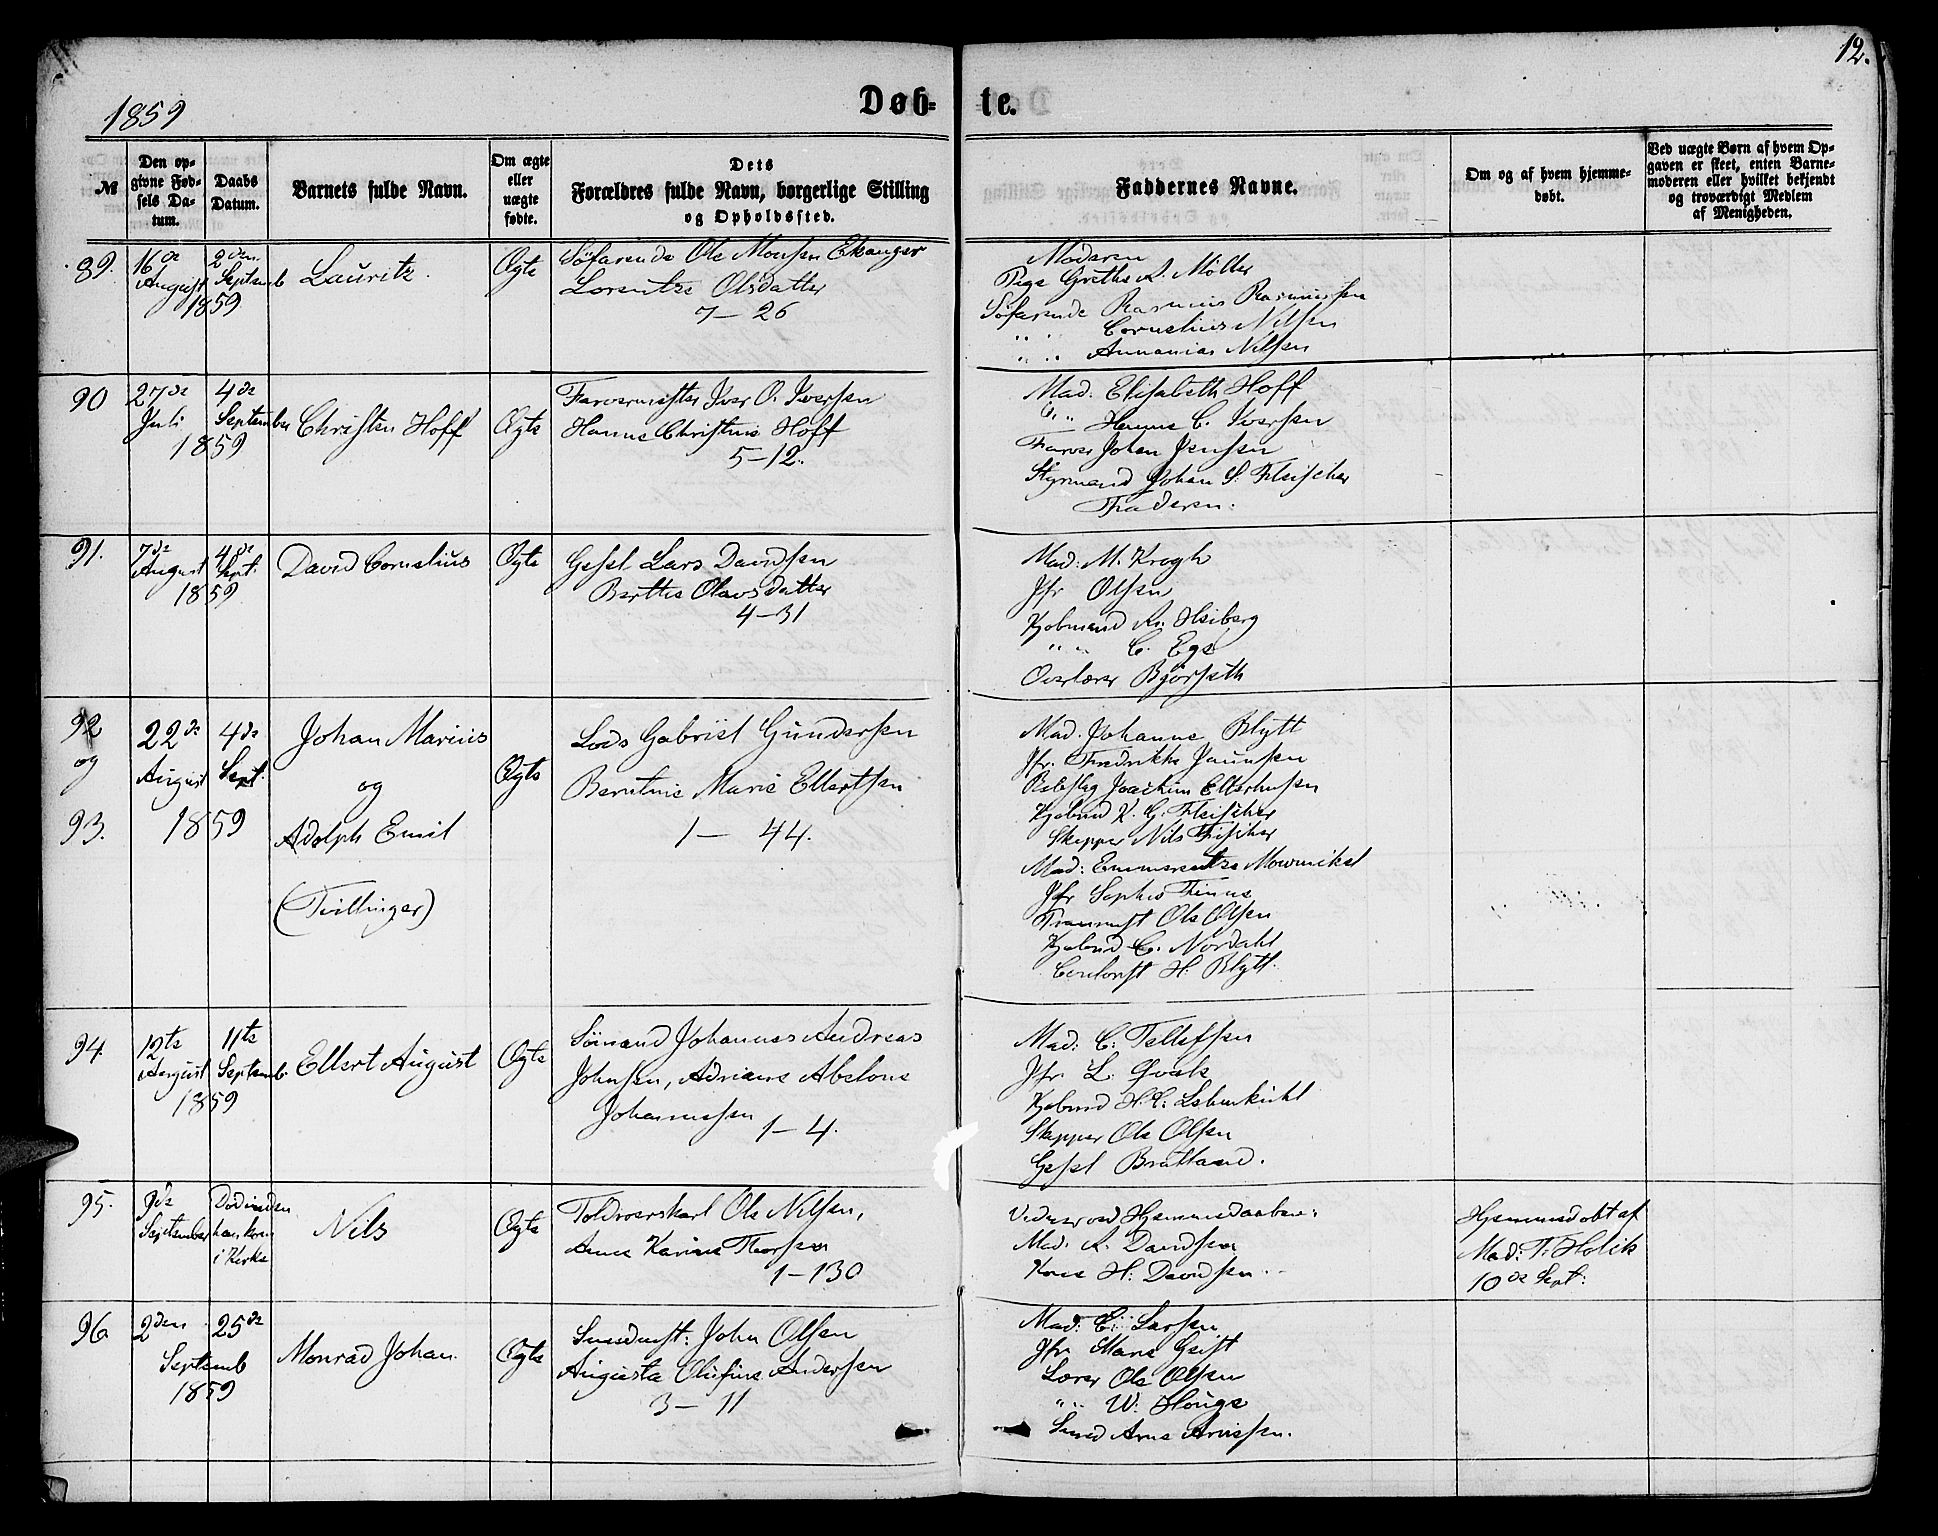 12.
1859
Døb-
te.
№
Den op-
givne Fød-
sels Da-
tum.
Daabs
Datum.
Barnets fulde Navn.
Om ægte
eller
uægte
fødte.
Dets
Forældres fulde Navn, borgerlige Stilling
og Opholdssted.
Faddernes Navne.
Om og af hvem hjemme-
døbt.
Ved uægte Børn af hvem Op-
gaven er skeet, enten Barne-
moderen eller hvilket bekjendt
og troværdigt Medlem
af Menigheden.
89.
16de
August
2den
Septemb
1859
Lauritz
Ægte
Søfarende Ole Monsen Ekanger
Lorentze Olsdatter
7 — 26
Moderen
Pige Grethe A. Møller
Søfarende Rasmus Rasmussen
" " Cornelius Nilsen
" " Annanias Nilsen
90
27de
Juli
4de
September
1859
Christen Hoff
Ægte
Farvermester Iver O. Iversen
Hanne Christine Hoff
5 — 12.
Mad. Elisabeth Hoff
" " Hanne C. Iversen
Farver Johan Jensen
Styrmand Johan S. Fleischer
Faderen.
91.
7de
August
4de
Sept.
1859
David Cornelius
Ægte
Gesel Lars Davidsen
Berthe Olavsdatter
4 — 31
Mad: M. Krogh
Jfr Olsen
Kjøbmand A. Heiberg
" " C. Ege
Overlærer Bjørseth
92
og
93.
22de
August
4de
Sept.
1859
Johan Marius
og
Adolph Emil
(Tvillinger)
Ægte
Lods Gabriel Gundersen
Berntine Marie Ellertsen
1 — 44.
Mad. Johanne Blytt
Jfr. Fredrikke Jannsen
Rebslag Joachim Ellerhusen
Kjøbmd K. G. Fleischer
Skipper Nils Fischer
Mad: Emmerentze Mowinkel
Jfr Sophie Finne
Ole Olsen
Kjøbmd C. Nordahl
H. Blytt.
94.
12te
August
11te
Septemb.
1859
Ellert August
Ægte
Sømand Johannes Andreas
Johnsen, Adriane Abelone
Johannessen
1 — 4.
Mad: C. Tellefsen
Jfr. L. Qvale
Kjøbmd H. C. Lehmkuhl
Skipper Ole Olsen
Gesel Bratland.
95.
9de
September
Død inden
han kom
i Kirke
Nils
Ægte
Toldroerskarl Ole Nilsen,
Anne Karine Thorsen
1 — 130
Vidner ved Hjemmedaaben:
Mad. A. Davidsen
Kone H: Davidsen
Hjemmedøbt af
Mad: T. Holck
10de Sept:
96
2den
25de
Septemb
1859
Monrad Johan
Ægte
Smedmst: John Olsen
Augusta Olufine Andersen
3 — 11
Mad: E: Larsen
Jfr Marie Geist
Lærer Ole Olsen
" " W. Houge
Smed Arne Arnesen.